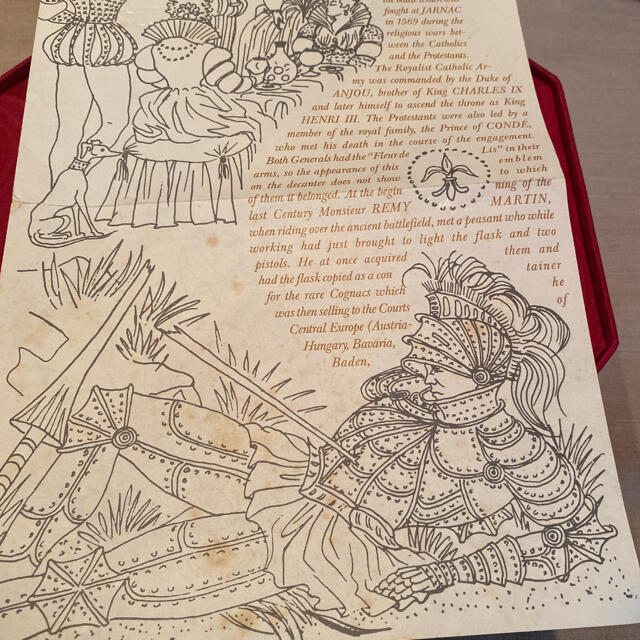 the battle which was
fought at JARNAC
in 1569 during the
religious wars bet-
ween the Catholics
and the Protestants.
The Royalist Catholic Ar-
my was commanded by the Duke of
ANJOU, brother of King CHARLES IX
and later himself to ascend the throne as King
HENRI III. The Protestants were also led by a
member of the royal family, the Prince of CONDÉ,
who met his death in the course of the engagement.
Both Generals had the "Fleur de Lis" in their
arms, so the appearance of this emblem
on the decanter does not show to which
of them it belonged. At the begin ning of the
last Century Monsieur REMY MARTIN,
when riding over the ancient battlefield, met a peasant who while
working had just brought to light the flask and two
pistols. He at once acquired them and
had the flask copied as a con tainer
for the rare Cognacs which he
was then selling to the Courts of
Central Europe (Austria-
Hungary, Bavaria,
Baden,